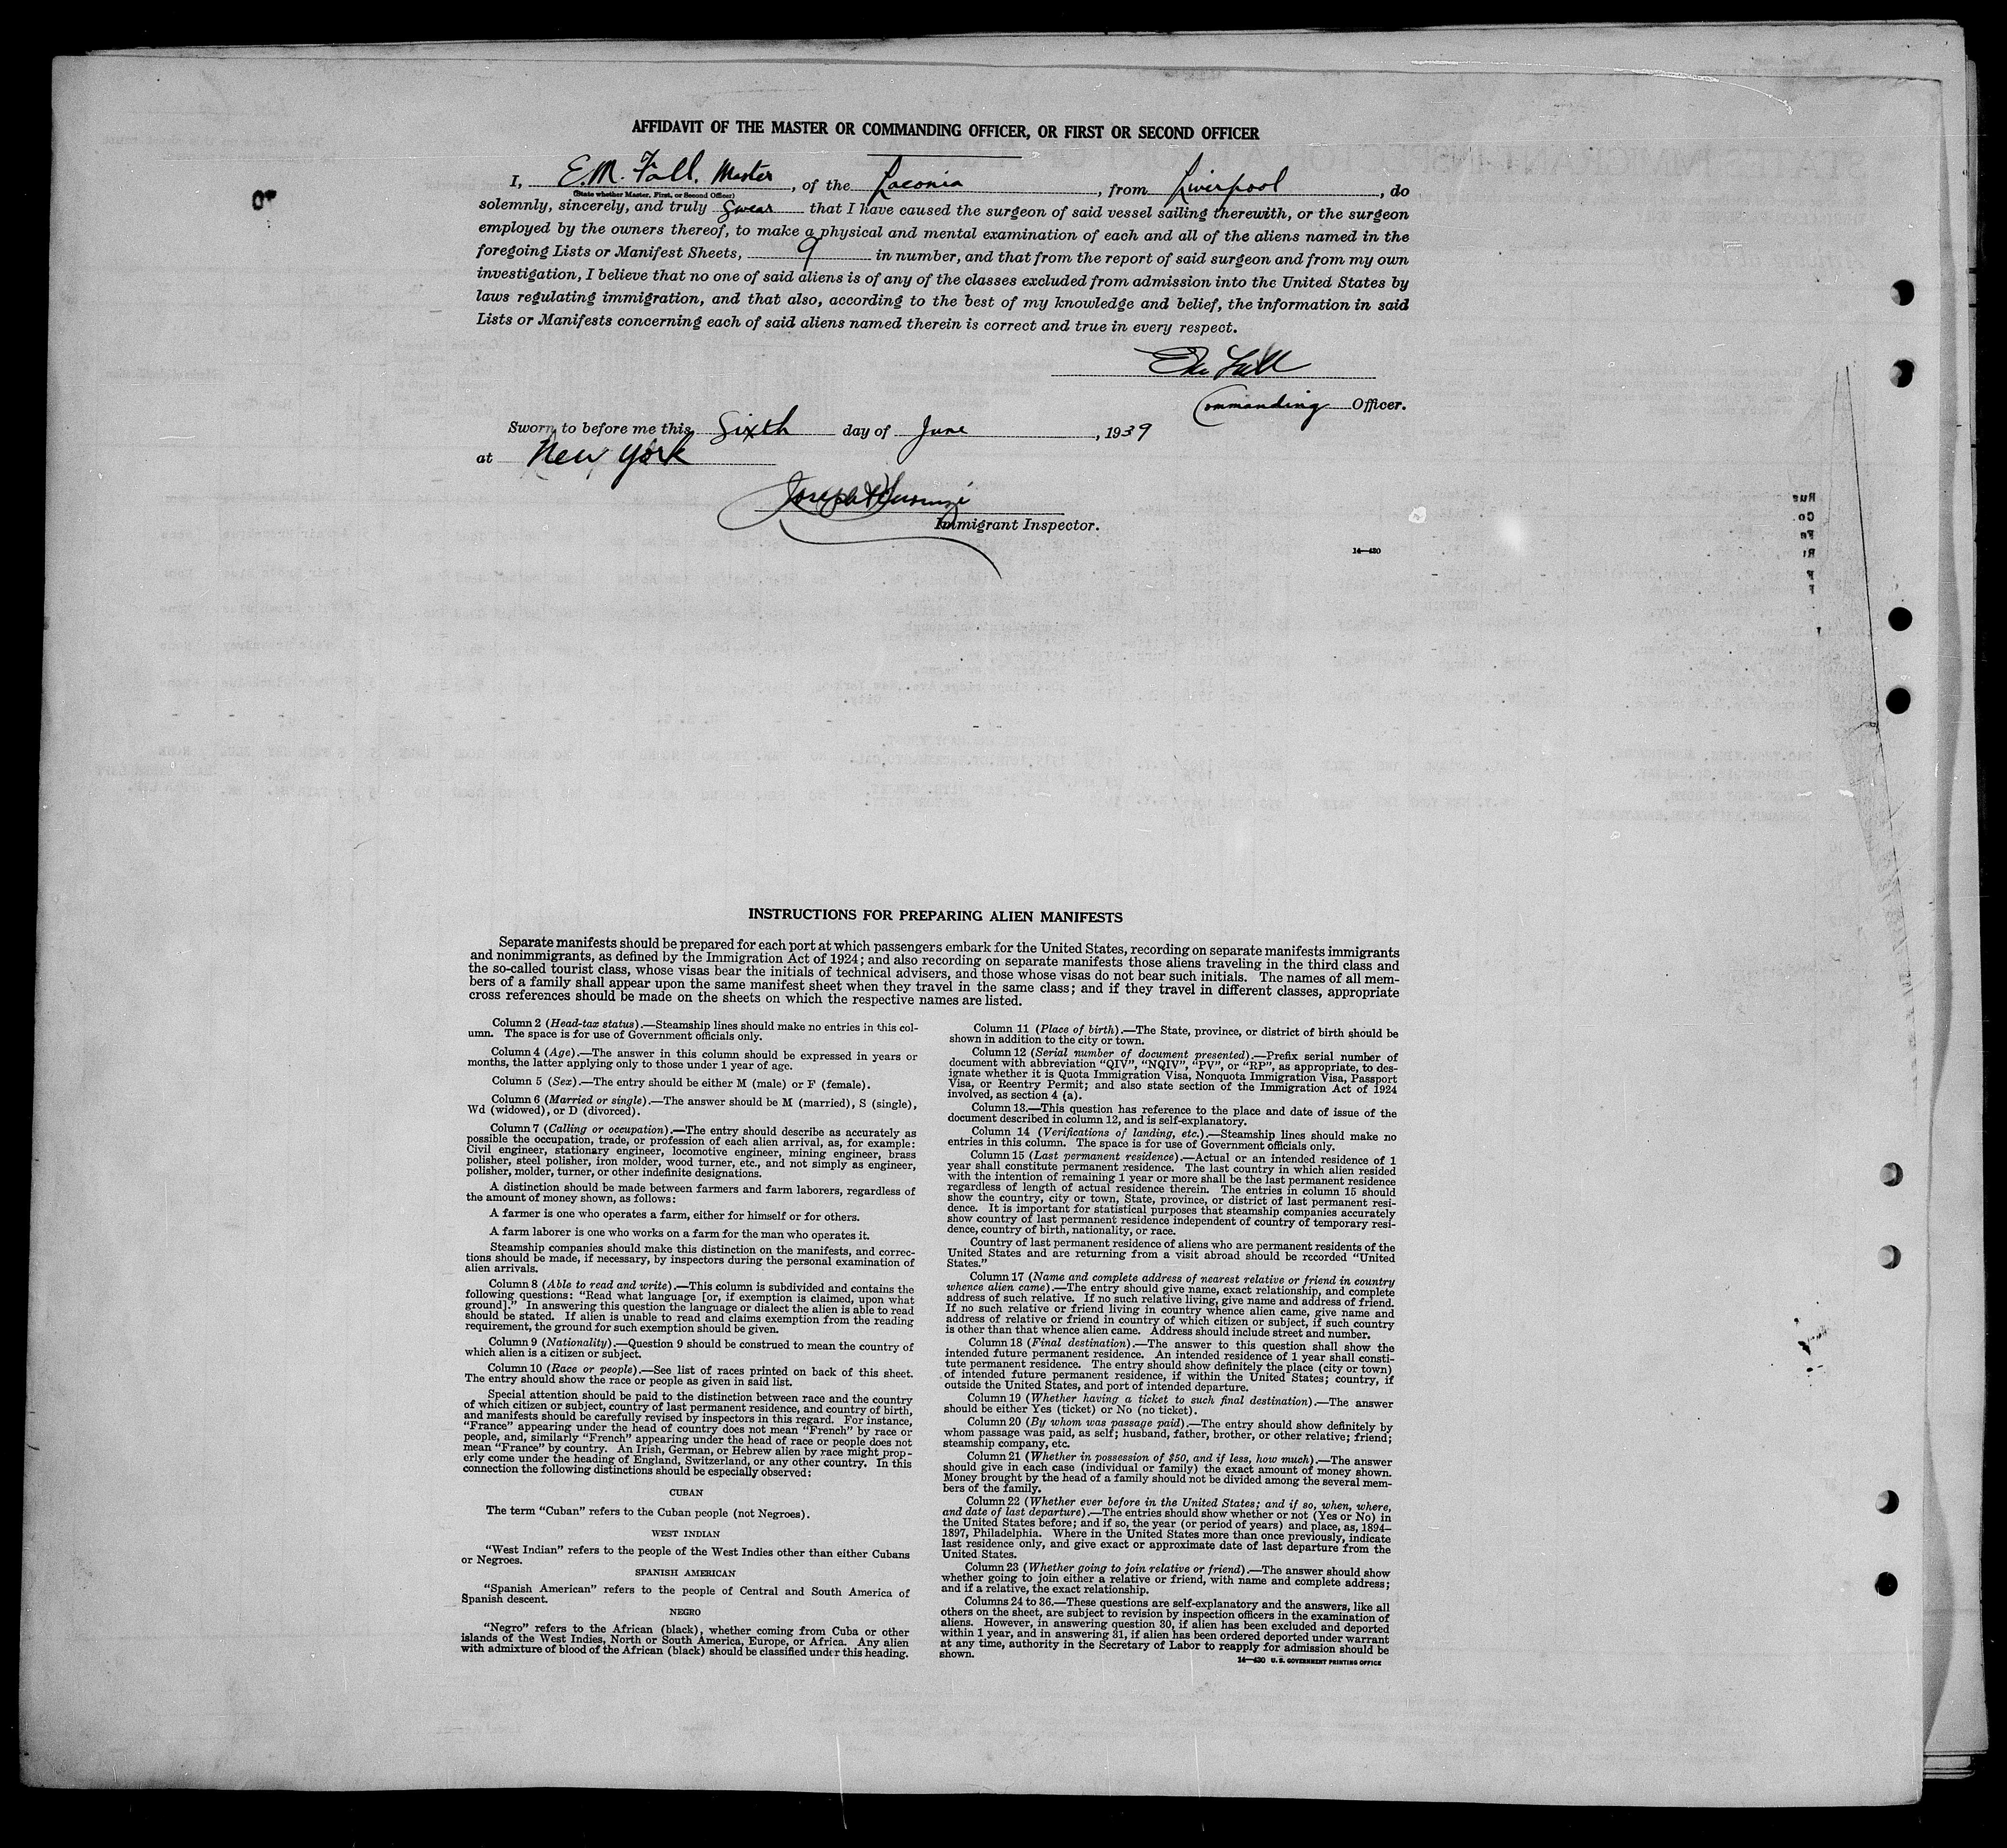 AFFIDAVIT OF THE MASTER OR COMMANDING OFFICER, OR FIRST OR SECOND OFFICER
I, E.M. Fall, Master, of the Laconia, from Liverpool, do
(State whether Master, First, or Second Officer)
solemnly, sincerely, and truly swear that I have caused the surgeon of said vessel sailing therewith, or the surgeon
employed by the owners thereof, to make a physical and mental examination of each and all of the aliens named in the
foregoing Lists or Manifest Sheets, 9 in number, and that from the report of said surgeon and from my own
investigation, I believe that no one of said aliens is of any of the classes excluded from admission into the United States by
laws regulating immigration, and that also, according to the best of my knowledge and belief, the information in said
Lists or Manifests concerning each of said aliens named therein is correct and true in every respect.
Fall
Commanding Officer.
Sworn to before me this Sixth day of June, 1939
at New York
Joseph
Immigrant Inspector.
14—430
INSTRUCTIONS FOR PREPARING ALIEN MANIFESTS
Separate manifests should be prepared for each port at which passengers embark for the United States, recording on separate manifests immigrants
and nonimmigrants, as defined by the Immigration Act of 1924; and also recording on separate manifests those aliens traveling in the third class and
the so-called tourist class, whose visas bear the initials of technical advisers, and those whose visas do not bear such initials. The names of all mem-
bers of a family shall appear upon the same manifest sheet when they travel in the same class; and if they travel in different classes, appropriate
cross references should be made on the sheets on which the respective names are listed.
Column 2 (Head-tax status).—Steamship lines should make no entries in this col-
umn. The space is for use of Government officials only.
Column 4 (Age).—The answer in this column should be expressed in years or
months, the latter applying only to those under 1 year of age.
Column 5 (Sex).—The entry should be either M (male) or F (female).
Column 6 (Married or single).—The answer should be M (married), S (single),
Wd (widowed), or D (divorced).
Column 7 (Calling or occupation).—The entry should describe as accurately as
possible the occupation, trade, or profession of each alien arrival, as, for example:
Civil engineer, stationary engineer, locomotive engineer, mining engineer, brass
polisher, steel polisher, iron molder, wood turner, etc., and not simply as engineer,
polisher, molder, turner, or other indefinite designations.
A distinction should be made between farmers and farm laborers, regardless of
the amount of money shown, as follows:
A farmer is one who operates a farm, either for himself or for others.
A farm laborer is one who works on a farm for the man who operates it.
Steamship companies should make this distinction on the manifests, and correc-
tions should be made, if necessary, by inspectors during the personal examination of
alien arrivals.
Column 8 (Able to read and write).—This column is subdivided and contains the
following questions: “Read what language [or, if exemption is claimed, upon what
ground].” In answering this question the language or dialect the alien is able to read
should be stated. If alien is unable to read and claims exemption from the reading
requirement, the ground for such exemption should be given.
Column 9 (Nationality).—Question 9 should be construed to mean the country of
which alien is a citizen or subject.
Column 10 (Race or people).—See list of races printed on back of this sheet.
The entry should show the race or people as given in said list.
Special attention should be paid to the distinction between race and the country
of which citizen or subject, country of last permanent residence, and country of birth,
and manifests should be carefully revised by inspectors in this regard. For instance,
“France” appearing under the head of country does not mean “French” by race or
people, and, similarly “French” appearing under the head of race or people does not
mean “France” by country. An Irish, German, or Hebrew alien by race might prop-
erly come under the heading of England, Switzerland, or any other country. In this
connection the following distinctions should be especially observed:
CUBAN
The term “Cuban” refers to the Cuban people (not Negroes).
WEST INDIAN
“West Indian” refers to the people of the West Indies other than either Cubans
or Negroes.
SPANISH AMERICAN
“Spanish American” refers to the people of Central and South America of
Spanish descent.
NEGRO
“Negro” refers to the African (black), whether coming from Cuba or other
islands of the West Indies, North or South America, Europe, or Africa. Any alien
with admixture of blood of the African (black) should be classified under this heading.
Column 11 (Place of birth).—The State, province, or district of birth should be
shown in addition to the city or town.
Column 12 (Serial number of document presented).—Prefix serial number of
document with abbreviation “QIV”, “NQIV”, “PV”, or “RP”, as appropriate, to des-
ignate whether it is Quota Immigration Visa, Nonquota Immigration Visa, Passport
Visa, or Reentry Permit; and also state section of the Immigration Act of 1924
involved, as section 4 (a).
Column 13.—This question has reference to the place and date of issue of the
document described in column 12, and is self-explanatory.
Column 14 (Verifications of landing, etc.).—Steamship lines should make no
entries in this column. The space is for use of Government officials only.
Column 15 (Last permanent residence).—Actual or an intended residence of 1
year shall constitute permanent residence. The last country in which alien resided
with the intention of remaining 1 year or more shall be the last permanent residence
regardless of length of actual residence therein. The entries in column 15 should
show the country, city or town, State, province, or district of last permanent resi-
dence. It is important for statistical purposes that steamship companies accurately
show country of last permanent residence independent of country of temporary resi-
dence, country of birth, nationality, or race.
Country of last permanent residence of aliens who are permanent residents of the
United States and are returning from a visit abroad should be recorded “United
States.”
Column 17 (Name and complete address of nearest relative or friend in country
whence alien came).—The entry should give name, exact relationship, and complete
address of such relative. If no such relative living, give name and address of friend.
If no such relative or friend living in country whence alien came, give name and
address of relative or friend in country of which citizen or subject, if such country
is other than that whence alien came. Address should include street and number.
Column 18 (Final destination).—The answer to this question shall show the
intended future permanent residence. An intended residence of 1 year shall consti-
tute permanent residence. The entry should show definitely the place (city or town)
of intended future permanent residence, if within the United States; country, if
outside the United States, and port of intended departure.
Column 19 (Whether having a ticket to such final destination).—The answer
should be either Yes (ticket) or No (no ticket).
Column 20 (By whom was passage paid).—The entry should show definitely by
whom passage was paid, as self; husband, father, brother, or other relative; friend;
steamship company, etc.
Column 21 (Whether in possession of $50, and if less, how much).—The answer
should give in each case (individual or family) the exact amount of money shown.
Money brought by the head of a family should not be divided among the several mem-
bers of the family.
Column 22 (Whether ever before in the United States; and if so, when, where,
and date of last departure).—The entries should show whether or not (Yes or No) in
the United States before; and if so, the year (or period of years) and place, as, 1894–
1897, Philadelphia. Where in the United States more than once previously, indicate
last residence only, and give exact or approximate date of last departure from the
United States.
Column 23 (Whether going to join relative or friend).—The answer should show
whether going to join either a relative or friend, with name and complete address;
and if a relative, the exact relationship.
Columns 24 to 36.—These questions are self-explanatory and the answers, like all
others on the sheet, are subject to revision by inspection officers in the examination of
aliens. However, in answering question 30, if alien has been excluded and deported
within 1 year, and in answering 31, if alien has been ordered deported under warrant
at any time, authority in the Secretary of Labor to reapply for admission should be
shown.
14—430 U. S. GOVERNMENT PRINTING OFFICE